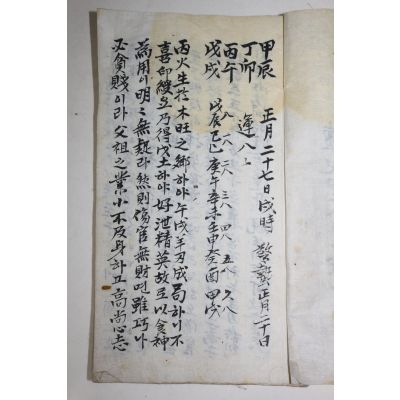 甲辰 正月二十七日戌時 驚蟄正月二十日
丁卯 運八上
丙午 八 一八 二八 三八 四八 五八 六八
戊戌 戊辰 己巳 庚午 辛未 壬申 癸酉 甲戌
丙火生於木旺之鄕하야午戌羊刃成局하니不
喜印綬오乃得戊土하야好泄精英故로以食神
爲用이明〻無疑라然則傷官無財면雖巧나
必貧賤이라父祖之業小不及身하고高尙心志